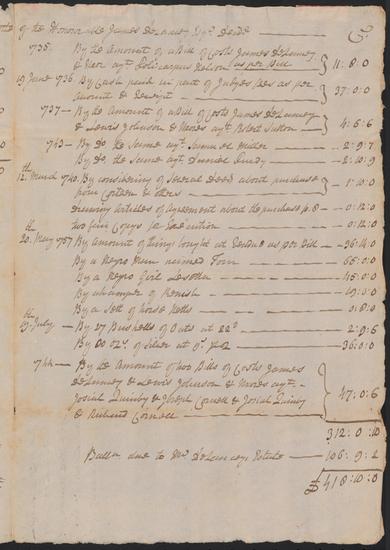 of the Honourable James DeLancey Esqr. Decd. Cr
1736. By the Amount of a Bill of Costs James DeLancey
& Her agt. Policarpus Nelson as per Bill 11:8:0
19 June 1736. By Cash paid in part of Judges fees as per
Amount & Receipt 37:0:0
1737 – By the Amount of a Bill of Costs James DeLancey
& Lewis Johnson & Mores agt. Robert Sutton 4:6:6
1743 – By Do. the Same agt. Samuel Miller 2:9:7
By Do. the Same agt. Daniel Purdy 2:10:9
12th. March 1740. By considering of Several Deed about purchase
from Corteen & others 1:10:0
drawing Articles of Agreement about the purchase p. 8 – 0:12:0
two fair Copys for Execution 0:12:0
20th. May 1757 By amount of things bought at Vendue as per Bill – 36:14:0
By a Negro Man named Tom 65:0:0
By a Negro Girl 45:0:0
By a hamper of Renish 10:0:0
By a Sett of horse Netts 0:8:0
19th. July – By 27 Bushells of Oats at 22d 2:9:6
By 80 oz. of Silver at 9s. 36:0:0
1744 – By the Amount of two Bills of Costs James
deLancey & Lewis Johnson & Mores agt.
Josiah Quinby & Joseph Cornell & Josiah Quinby
& Richard Cornell 47:0:6
312:0:10
Balla. due to Mr. DeLancey Estate 106:9:2
£418:10:0